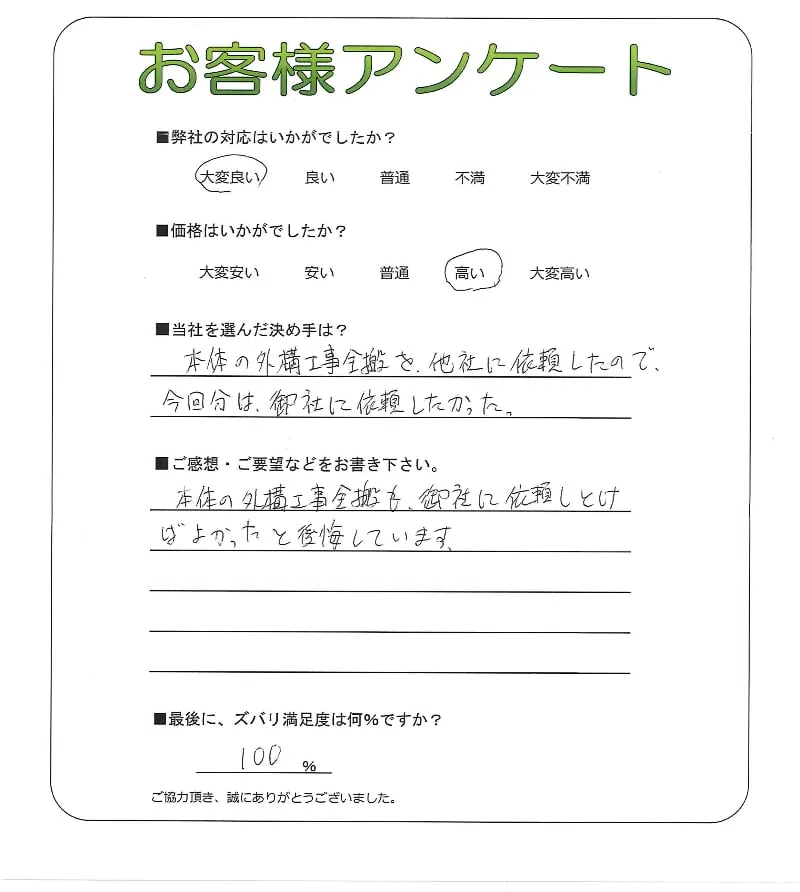 お客様アンケート
■弊社の対応はいかがでしたか？
大変良い 良い 普通 不満 大変不満
■価格はいかがでしたか？
大変安い 安い 普通 高い 大変高い
■当社を選んだ決め手は？
本体の外構工事全搬を、他社に依頼したので、
今回分は、御社に依頼したかった。
■ご感想・ご要望などをお書き下さい。
本体の外構工事全搬も、御社に依頼しとけ
ばよかったと後悔しています。
■最後に、ズバリ満足度は何％ですか？
100 ％
ご協力頂き、誠にありがとうございました。